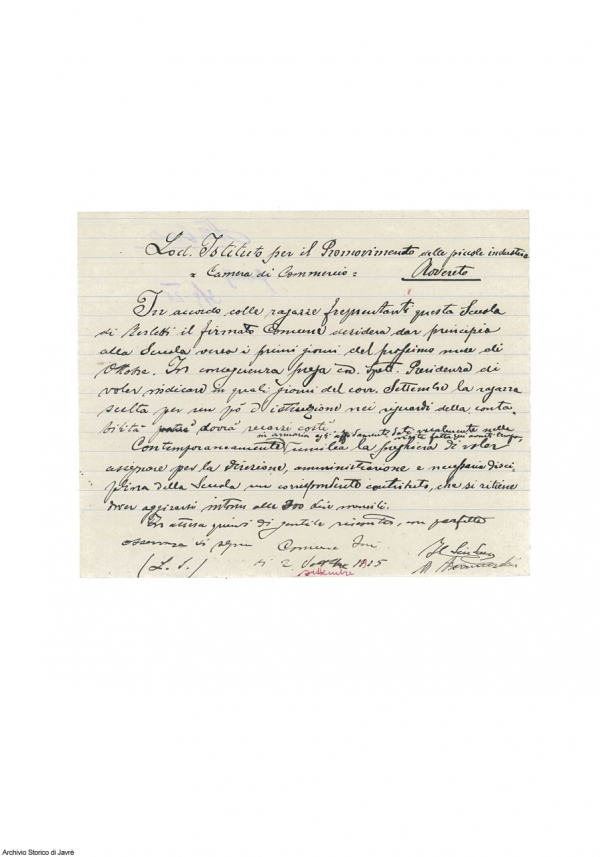 Lod. Istituto per il Promovimento delle piccole industrie
= Camera di Commercio = Rovereto
In accordo colle ragazze frequentanti questa Scuola
di Merletti il firmato Comune desidera dar principio
alla Scuola verso i primi giorni del prossimo mese di
Ottobre. In conseguenza prega cod. Spett. Presidenza di
voler indicare in quali giorni del corr. Settembre la ragazza
scelta per un pò d'istruzione nei riguardi della conta
bilità dovrà recarsi costì.
in armonia agli affidamenti dati verbalmente nella
visita fattaci avanti tempo,
Contemporaneamente umilia la preghiera di voler
assegnare per la direzione, amministrazione e necessaria disci
plina della Scuola un corrispondente contributo, che si ritiene
dover aggirarsi intorno alle 300 Lire mensili.
In attesa quindi di gentile riscontro, con perfetta
osservanza si segna Comune Il Sindaco
(L. S.) li 2 1925
settembre